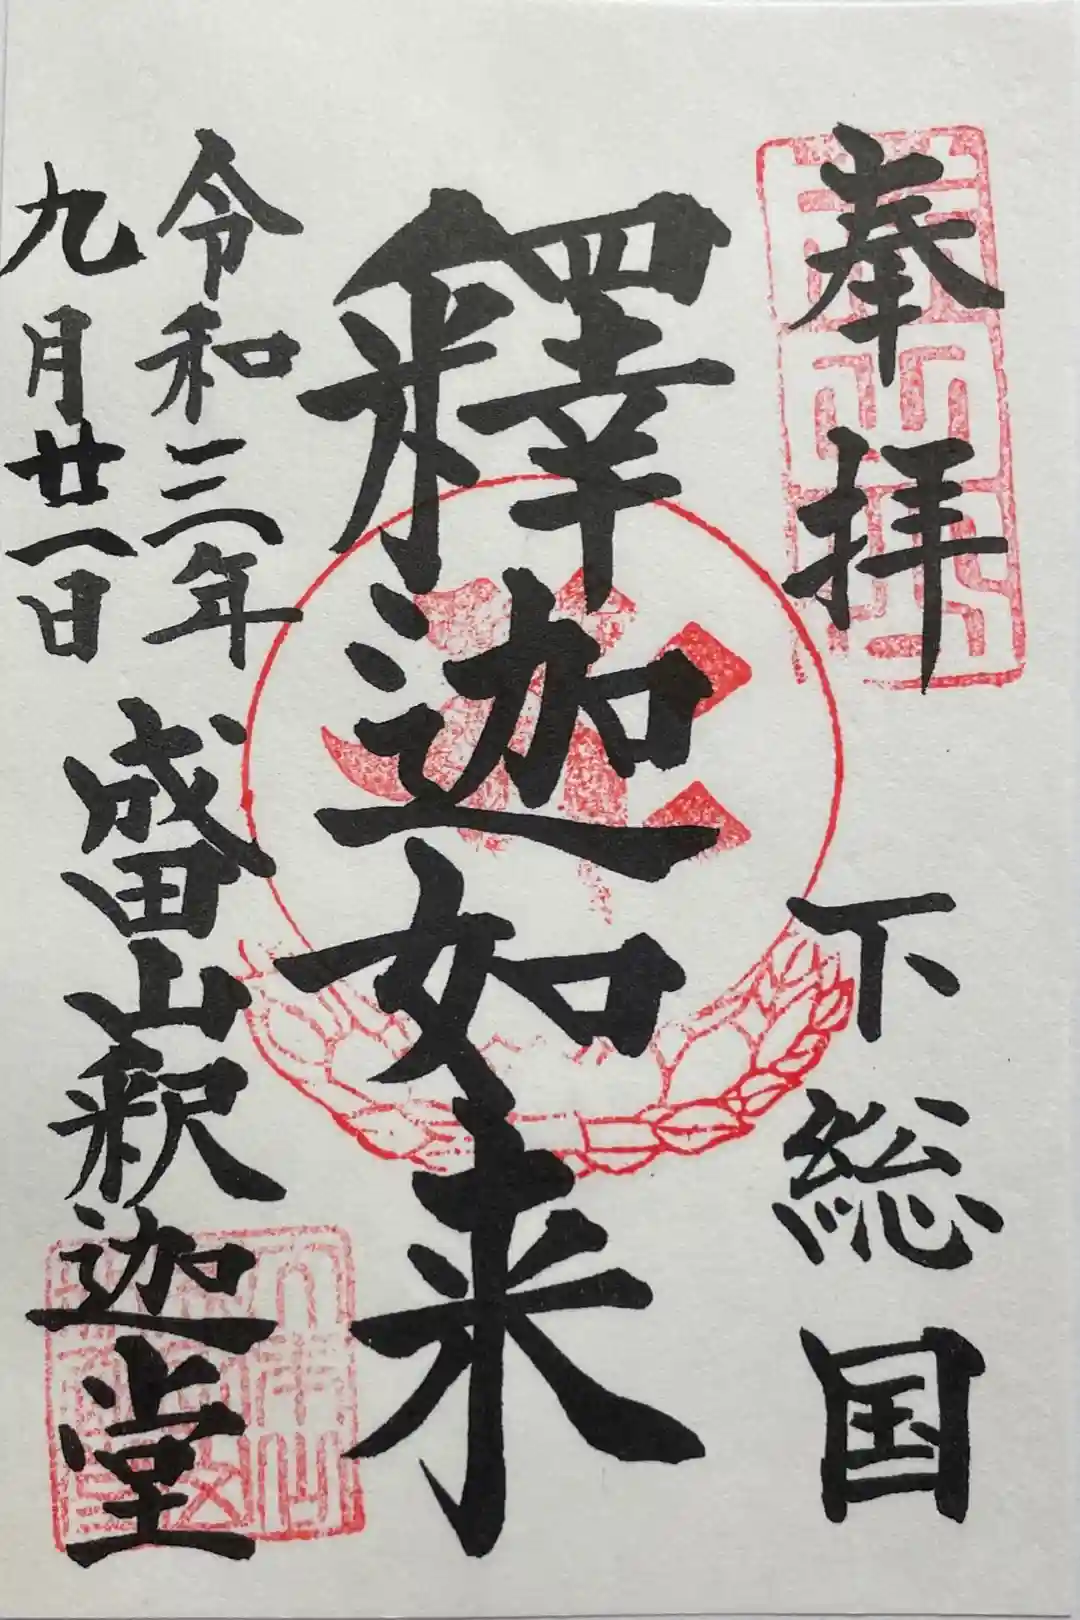 奉拝 下総国
釋迦如来
令和三年
九月廿一日
成田山釈迦堂